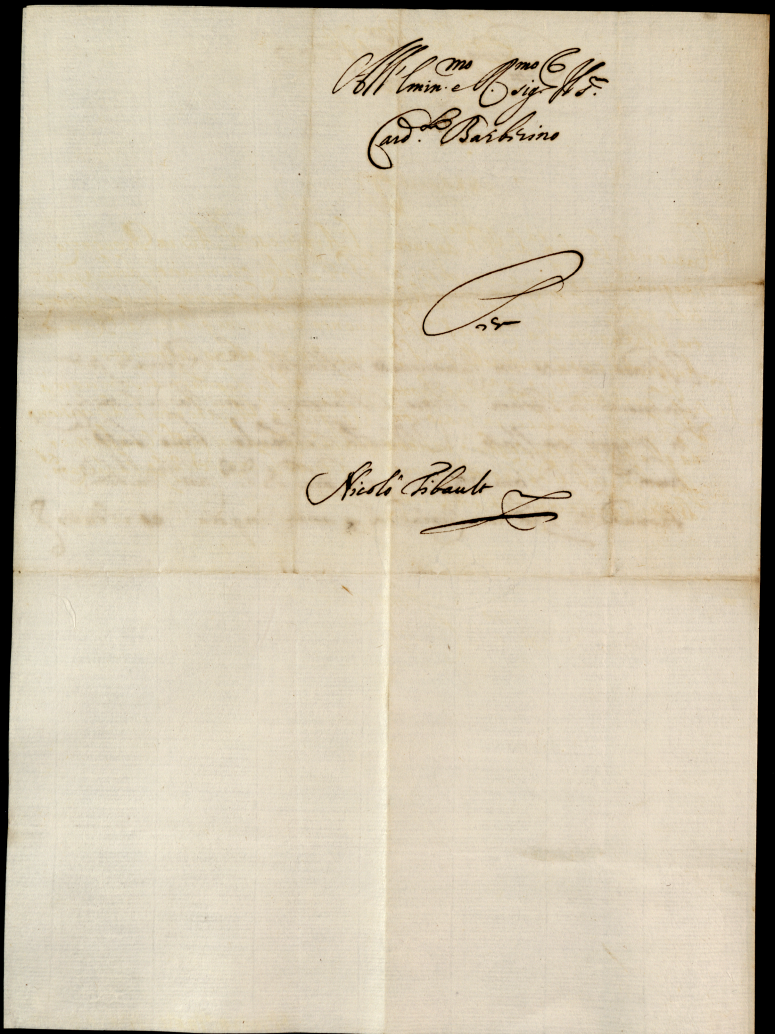 All'Emin.mo e R.mo Sig.r
Card.le Barberino
Per
Nicolò Tibault